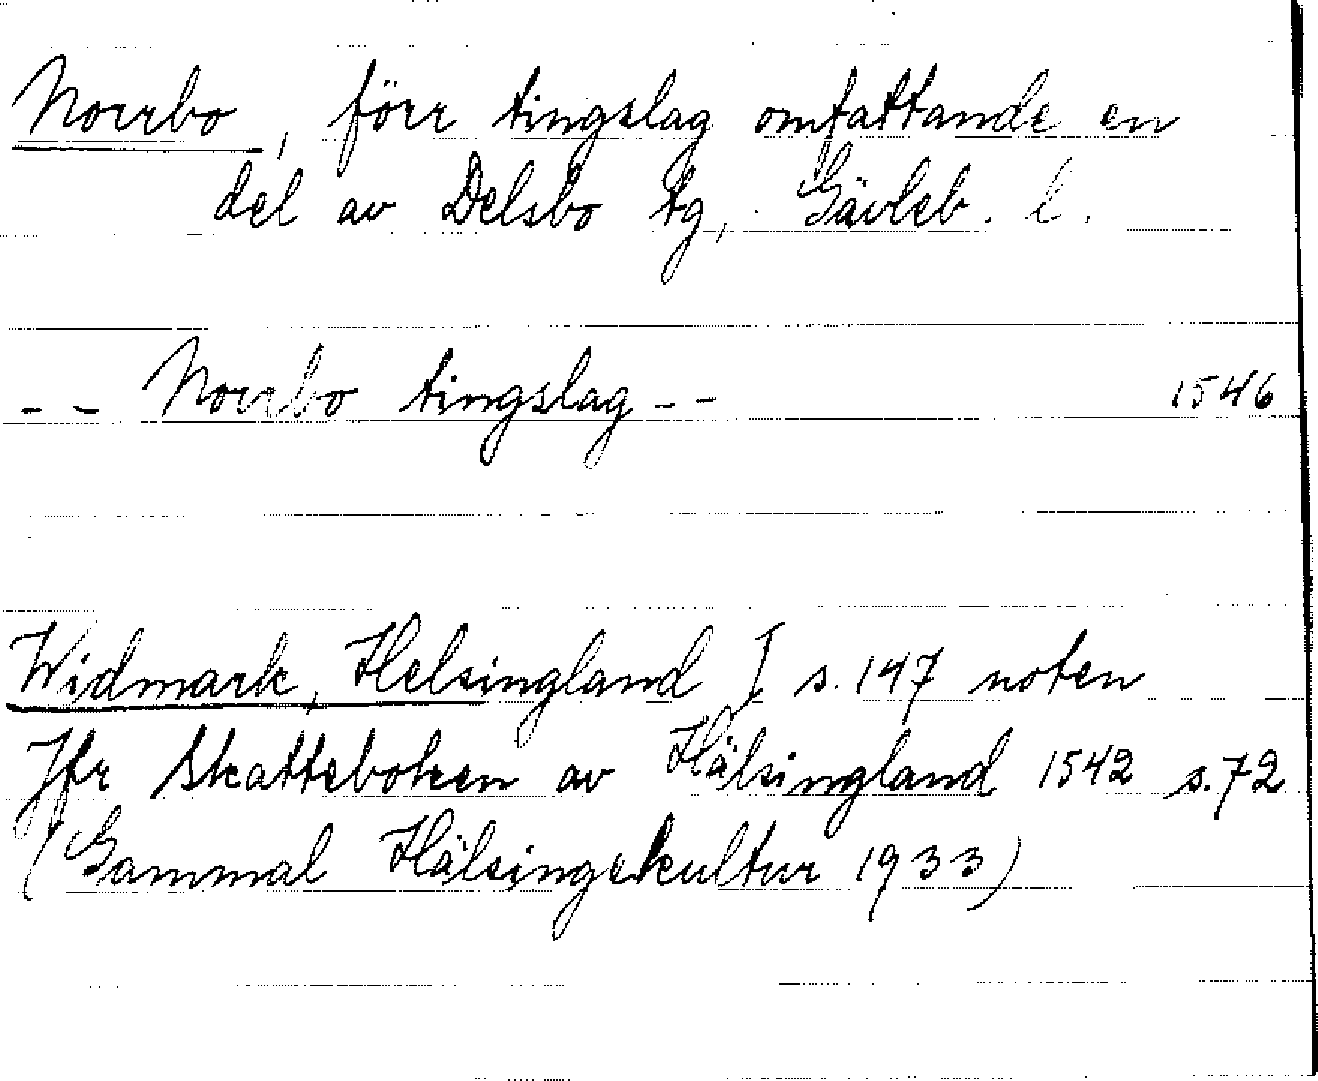 Norrbo, förr tingslag omfattande en
del av Delsbo tg, Gävleb. l.
-- Norrbo tingslag -- 1546
Widmark, Helsingland I s. 147 noten
Jfr Skatteboken av Hälsingland 1542 s. 72
(Gammal Hälsingekultur 1933)